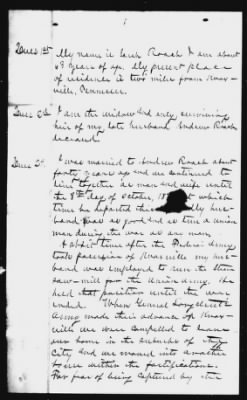 Ques 1st My name is Sarah Roach I am about
69 years of age. My present place
of residence is two miles from Knox-
ville, Tennessee.
Ques 2d I am the widow and only surviving
heir of my late husband Andrew Roach
deceased
Ques 3d I was married to Andrew Roach about
forty years ago and we continued to
live together as man and wife until
the 8th day of October 18 which
time he departed this My hus-
band was as good and as true a union
man during the war as any man.
A short time after the Federal Army
took possession of Knoxville my hus-
band was employed to run the steam
saw-mill for the Union Army. He
held that position until the war
ended. When General Longstreet's
Army made their advance of Knox-
ville we were compelled to leave
our home in the suburbs of the
City and we moved into another
house within the fortifications.
For fear of being captured by the